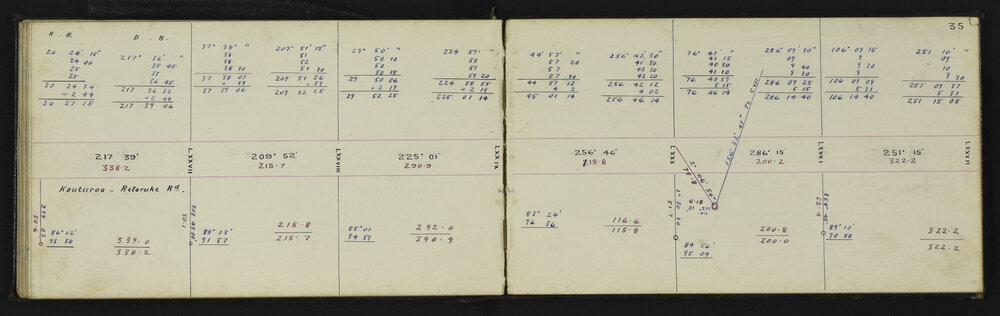 35
R. B.
D. B.
20 24' 15"
24 00
25
25
20 24 34
+ 2 44
20 27 18
217° 36' "
35 45
37
36 45
217 36 22
+ 2 44
217 39 06
37° 38' "
38
38
38 30
37 38 07
+ 59
37 39 06
209° 51' 15"
51
52
51 30
209 51 26
+ 59
209 52 25
29° 50' "
50 10
50
50 15
29 50 06
+ 2 19
29 52 25
224 59' "
58
59
59 20
224 58 55
+ 2 19
225 01 14
44° 57' "
57
57
57 30
44 57 12
4 2
45 01 14
256° 42' 30"
41 30
42 30
42 20
256 42 12
4 02
256 46 14
76° 41' "
41 15
40 30
40 30
76 40 59
5 15
76 46 14
286° 09' 30"
09
9 40
9 30
286 09 25
5 15
286 14 40
106° 09 15
9
9 20
9
106 09 09
5 31
106 14 40
251 10' "
09
10
9 30
251 09 37
5 31
251 15 08
156° 22' 47" To Chy
217 39'
338.2
LXXVII
209° 52'
215.7
LXXVIII
225° 01'
290.9
LXXIX
256° 46'
215.8
LXXX
286° 15'
200.2
LXXXI
251° 15'
322.2
LXXXII
Kouturoa - Retaruke Rd.
50.6
86° 02'
93 58
339.0
338.2
50.1
88° 02'
91 57
215.8
215.7
85° 01
94 59
292.0
290.9
83° 24'
96 36
116.6
115.8
2° 06' 54"
75.8
51.7
84° 56'
95 04
200.8
200.0
52.4
89° 10'
90 50
322.2
322.2